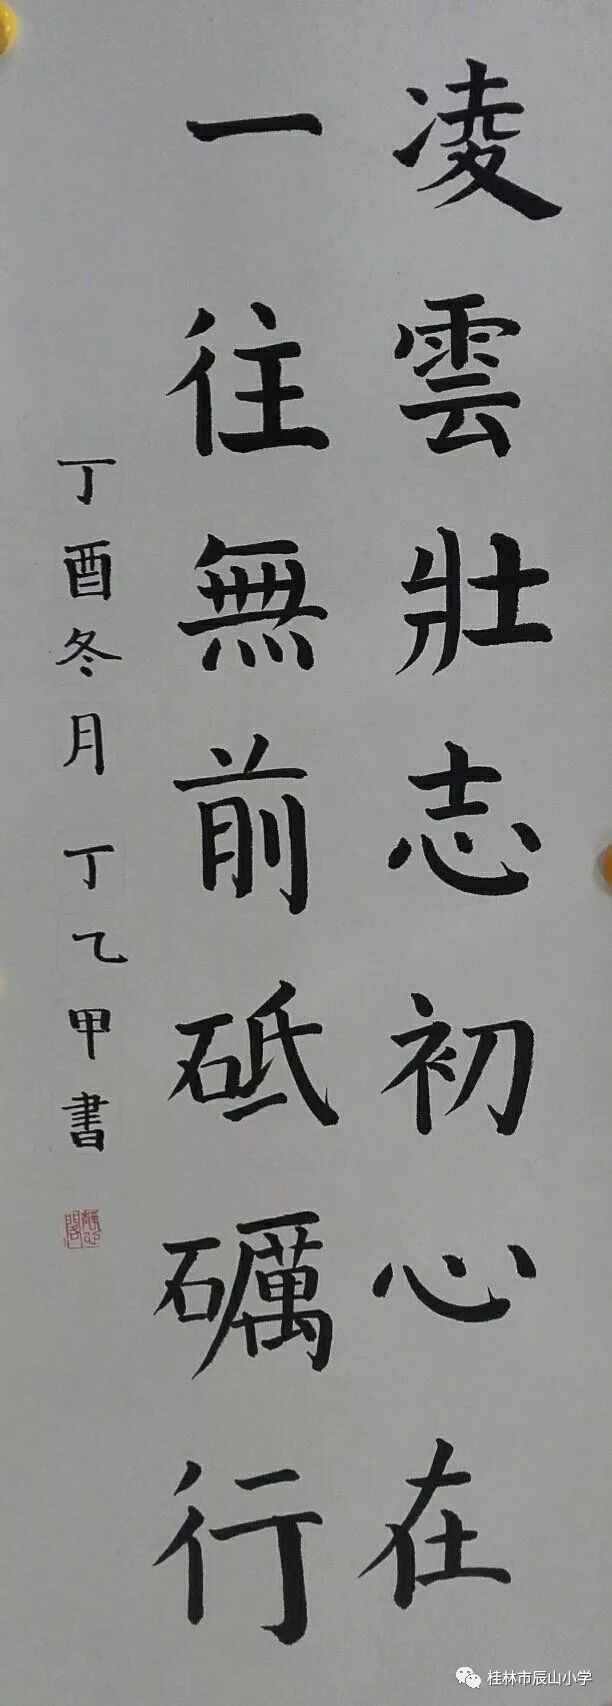 凌雲壯志初心在
一往無前砥礪行
丁酉冬月丁乙甲書
桂林市辰山小学